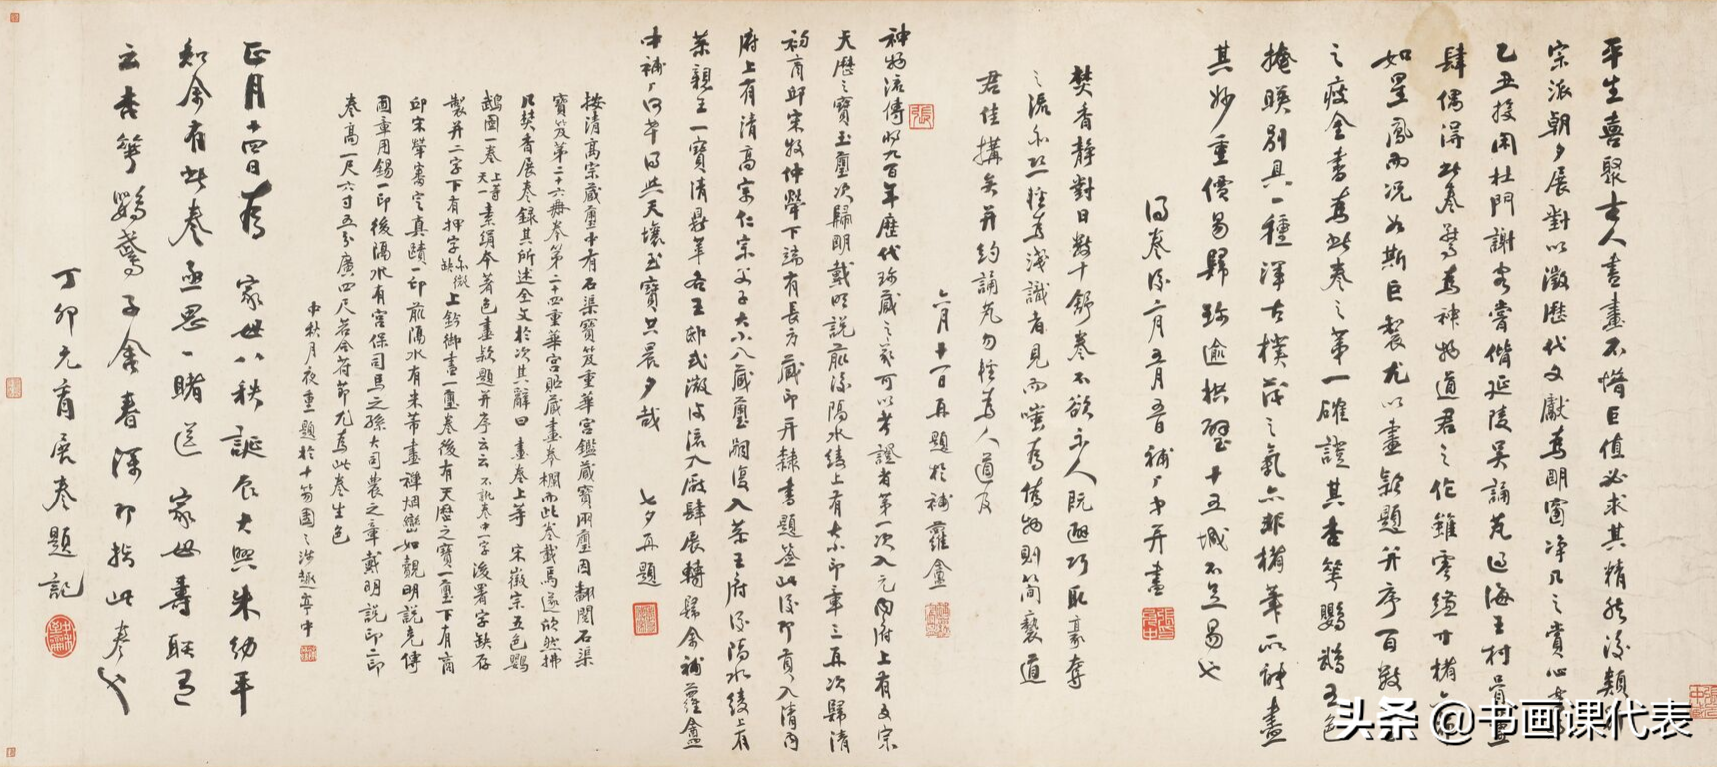 平生喜聚古人書畫不惜巨值必求其精然後類
宗派朝夕展對以徵歷代文獻為明窗淨几之賞心
乙丑投閑杜門謝客嘗偕延陵吳誦芃過海王村賈
肆偶得此卷驚為神物道君之作雖零縑寸楮
如星鳳而況如斯巨製尤以畫款題并序百數
之瘦金書為此卷之第一確證其杏華鸚鵡五色
掩映別具一種渾古樸茂之氣亦非楮筆所能盡
其妙重價易歸珍逾拱璧十五城不足易也
得卷後六月五日補
焚香靜對日數十舒卷不欲示人既避巧取豪奪
之流亦恐輕為淺識者見而嗤為偽物則簡褻道
君佳搆矣并約誦芃勿輕為人道及
六月十一日再題於補蘿盦
神物流傳將九百年歷代珍藏之家可以考證者第一次入元內府上有文宗
天歷之寶玉璽次歸明戴明說前後隔水綾上有大小印章三再次歸清
初商邱宋牧仲犖下端有長方藏印并隸書題簽此後即貢入清內
府上有清高宗仁宗父子大小八藏璽嗣復入某王府後隔水綾上有
某親王一寶清鼎革各王邸式微後流入廠肆展轉歸余補蘿盦
中補何幸得與天壤至寶共晨夕哉
七夕再題
按清高宗藏璽中有石渠寶笈重華宮鑑藏寶兩璽因翻閱石渠
寶笈第二十六冊卷第二十四重華宮貯藏畫卷欄而此卷載焉遂欣然拂
几焚香展卷錄其所述全文於次其辭曰畫卷上等 宋徽宗五色鸚
鵡圖一卷 上等天一 素絹本著色畫款題并序云云 後署字缺存
製并二字下有押字 上鈐御書一璽卷後有天歷之寶一璽下有商
邱宋犖審定真蹟一印前隔水有米芾畫禪烟巒如覿明說克傳
圖章用錫一印後隔水有宮保司馬之孫大司農之章戴明說印二印
卷高一尺六寸五分廣四尺若合符節尤為此卷生色
中秋月夜重題於十笏園之涉趣亭中
正月十四日為 家母八秩誕辰大興朱幼平
知余有此卷亟思一睹送 家母壽聯有
云杏華鸚鵡 子舍春深即指此卷也
丁卯元宵展卷題記
头条 @书画课代表